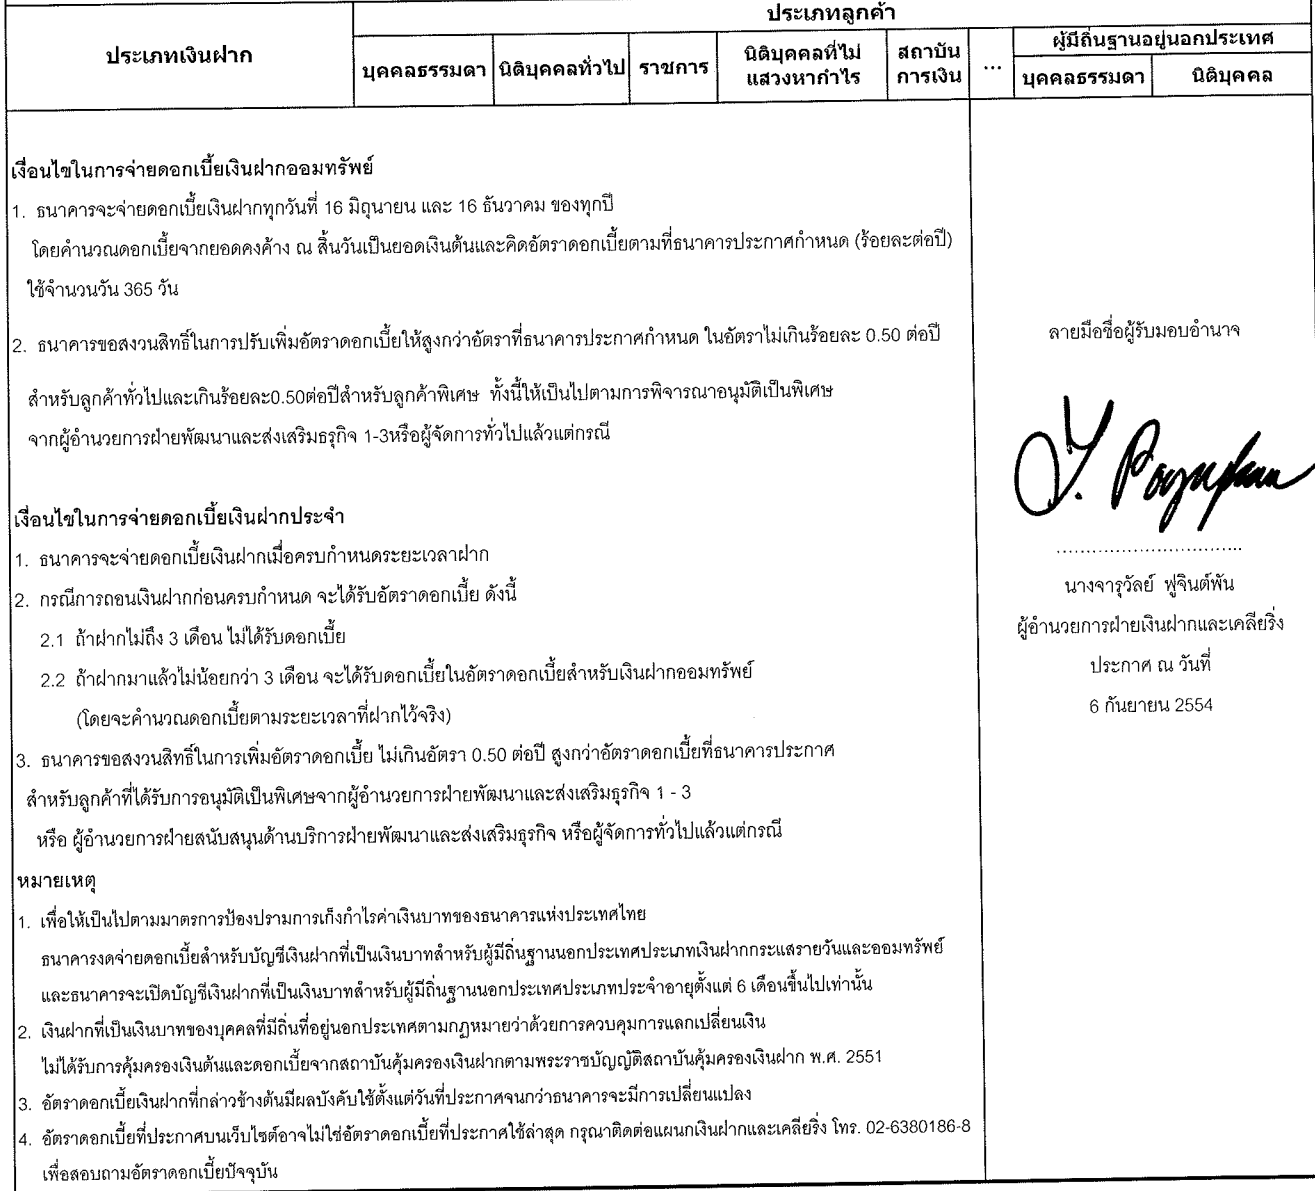 ประเภทลูกค้า
ประเภทเงินฝาก
บุคคลธรรมดา นิติบุคคลทั่วไป ราชการ
นิติบุคคลที่ไม่
แสวงหากำไร
สถาบัน
การเงิน
...
ผู้มีถิ่นฐานอยู่นอกประเทศ
บุคคลธรรมดา นิติบุคคล
เงื่อนไขในการจ่ายดอกเบี้ยเงินฝากออมทรัพย์
1. ธนาคารจะจ่ายดอกเบี้ยเงินฝากทุกวันที่ 16 มิถุนายน และ 16 ธันวาคม ของทุกปี
โดยคำนวณดอกเบี้ยจากยอดคงค้าง ณ สิ้นวันเป็นยอดเงินต้นและคิดอัตราดอกเบี้ยตามที่ธนาคารประกาศกำหนด (ร้อยละต่อปี)
ใช้จำนวนวัน 365 วัน
2. ธนาคารขอสงวนสิทธิ์ในการปรับเพิ่มอัตราดอกเบี้ยให้สูงกว่าอัตราที่ธนาคารประกาศกำหนด ในอัตราไม่เกินร้อยละ 0.50 ต่อปี
สำหรับลูกค้าทั่วไปและเกินร้อยละ0.50ต่อปีสำหรับลูกค้าพิเศษ ทั้งนี้ให้เป็นไปตามการพิจารณาอนุมัติเป็นพิเศษ
จากผู้อำนวยการฝ่ายพัฒนาและส่งเสริมธรุกิจ 1-3หรือผู้จัดการทั่วไปแล้วแต่กรณี
เงื่อนไขในการจ่ายดอกเบี้ยเงินฝากประจำ
1. ธนาคารจะจ่ายดอกเบี้ยเงินฝากเมื่อครบกำหนดระยะเวลาฝาก
2. กรณีการถอนเงินฝากก่อนครบกำหนด จะได้รับอัตราดอกเบี้ย ดังนี้
2.1 ถ้าฝากไม่ถึง 3 เดือน ไม่ได้รับดอกเบี้ย
2.2 ถ้าฝากมาแล้วไม่น้อยกว่า 3 เดือน จะได้รับดอกเบี้ยในอัตราดอกเบี้ยสำหรับเงินฝากออมทรัพย์
(โดยจะคำนวณดอกเบี้ยตามระยะเวลาที่ฝากไว้จริง)
3. ธนาคารขอสงวนสิทธิ์ในการเพิ่มอัตราดอกเบี้ย ไม่เกินอัตรา 0.50 ต่อปี สูงกว่าอัตราดอกเบี้ยที่ธนาคารประกาศ
สำหรับลูกค้าที่ได้รับการอนุมัติเป็นพิเศษจากผู้อำนวยการฝ่ายพัฒนาและส่งเสริมธุรกิจ 1 - 3
หรือ ผู้อำนวยการฝ่ายสนับสนุนด้านบริการฝ่ายพัฒนาและส่งเสริมธุรกิจ หรือผู้จัดการทั่วไปแล้วแต่กรณี
หมายเหตุ
1. เพื่อให้เป็นไปตามมาตรการป้องปรามการเก็งกำไรค่าเงินบาทของธนาคารแห่งประเทศไทย
ธนาคารงดจ่ายดอกเบี้ยสำหรับบัญชีเงินฝากที่เป็นเงินบาทสำหรับผู้มีถิ่นฐานนอกประเทศประเภทเงินฝากกระแสรายวันและออมทรัพย์
และธนาคารจะเปิดบัญชีเงินฝากที่เป็นเงินบาทสำหรับผู้มีถิ่นฐานนอกประเทศประเภทประจำอายุตั้งแต่ 6 เดือนขึ้นไปเท่านั้น
2. เงินฝากที่เป็นเงินบาทของบุคคลที่มีถิ่นที่อยู่นอกประเทศตามกฎหมายว่าด้วยการควบคุมการแลกเปลี่ยนเงิน
ไม่ได้รับการคุ้มครองเงินต้นและดอกเบี้ยจากสถาบันคุ้มครองเงินฝากตามพระราชบัญญัติสถาบันคุ้มครองเงินฝาก พ.ศ. 2551
3. อัตราดอกเบี้ยเงินฝากที่กล่าวข้างต้นมีผลบังคับใช้ตั้งแต่วันที่ประกาศจนกว่าธนาคารจะมีการเปลี่ยนแปลง
4. อัตราดอกเบี้ยที่ประกาศบนเว็บไซต์อาจไม่ใช่อัตราดอกเบี้ยที่ประกาศใช้ล่าสุด กรุณาติดต่อแผนกเงินฝากและเคลียริ่ง โทร. 02-6380186-8
เพื่อสอบถามอัตราดอกเบี้ยปัจจุบัน
ลายมือชื่อผู้รับมอบอำนาจ
...............................
นางจารุวัลย์ ฟูจินต์พัน
ผู้อำนวยการฝ่ายเงินฝากและเคลียริ่ง
ประกาศ ณ วันที่
6 กันยายน 2554